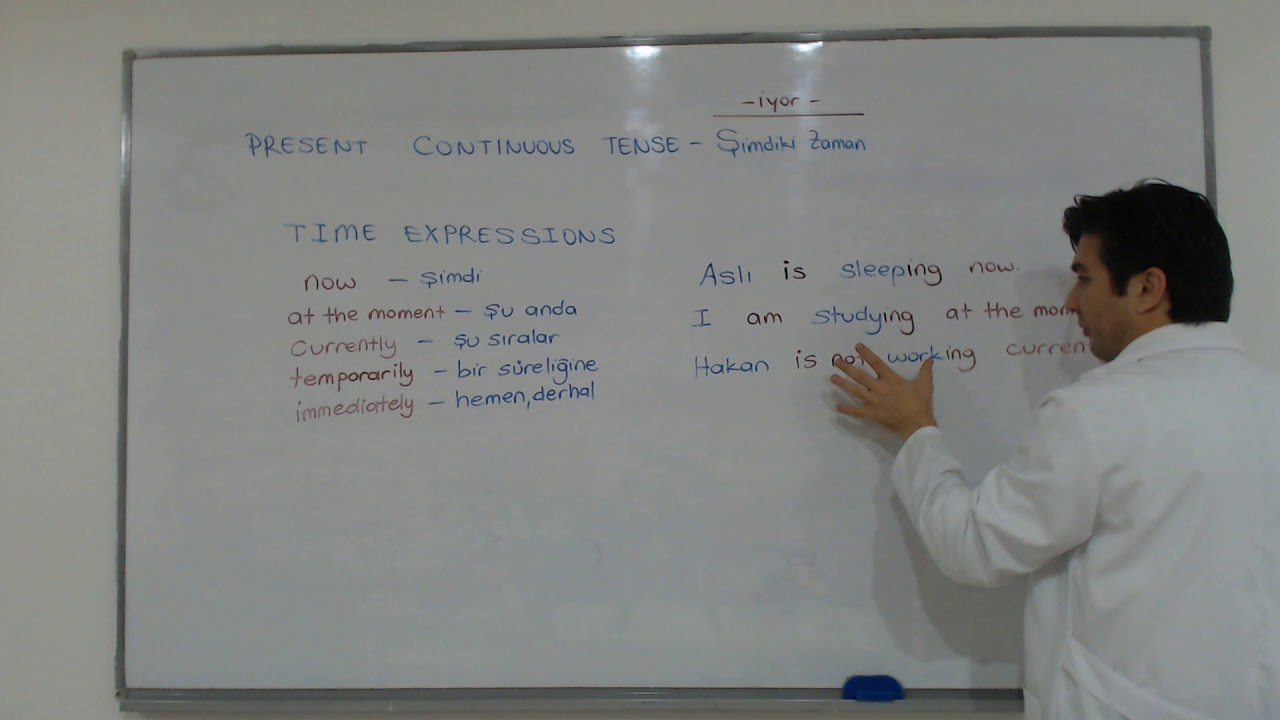 -iyor-
PRESENT CONTINUOUS TENSE - Şimdiki Zaman
TIME EXPRESSIONS
now - şimdi
at the moment - şu anda
currently - şu sıralar
temporarily - bir süreliğine
immediately - hemen, derhal
Aslı is sleeping now.
I am studying at the mom
Hakan is not working curren